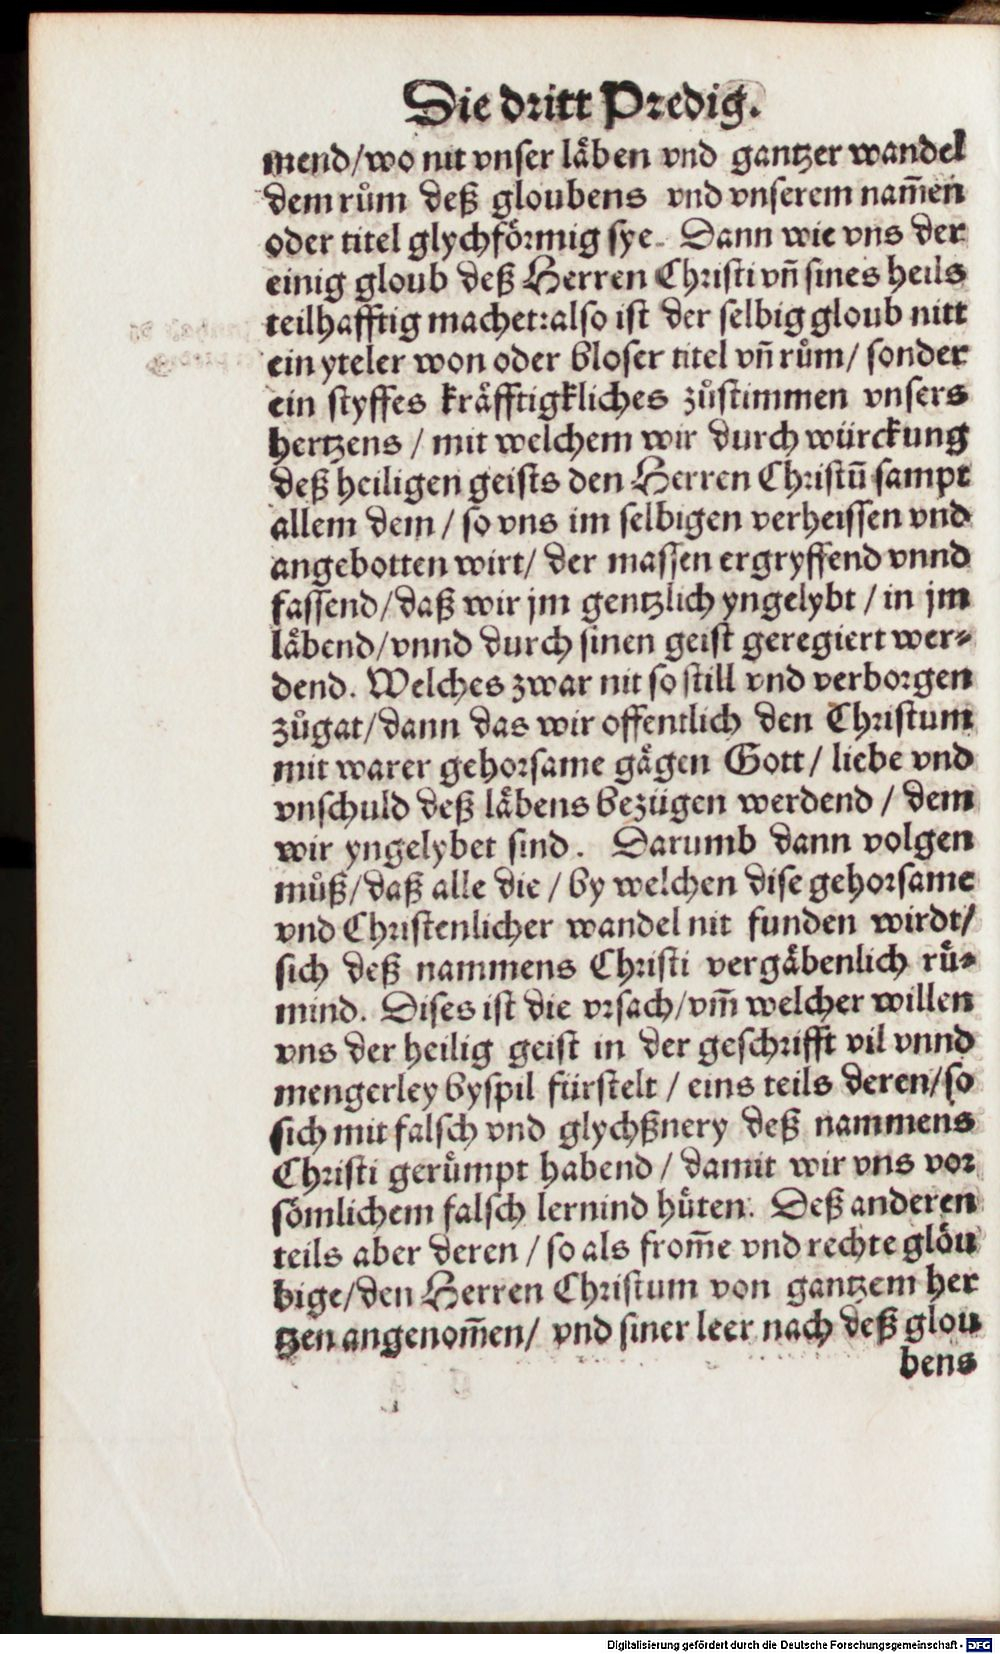 Die dritt Predig.
mend/wo nit vnser låben vnd gantzer wandel
dem rům deß gloubens vnd vnserem nam̃en
oder titel glychförmig sye. Dann wie vns der
einig gloub deß Herren Christi vñ sines heils
teilhafftig machet:also ist der selbig gloub nitt
ein yteler won oder bloser titel vñ rům/ sonder
ein styffes kråfftigkliches zůstimmen vnsers
hertzens / mit welchem wir durch würckung
deß heiligen geists den Herren Christũ sampt
allem dem / so vns im selbigen verheissen vnd
angebotten wirt/ der massen ergryffend vnnd
fassend/daß wir jm gentzlich yngelybt / in jm
låbend/vnnd durch sinen geist geregiert wer⸗
dend. Welches zwar nit so still vnd verborgen
zůgat/dann das wir offentlich den Christum
mit warer gehorsame gågen Gott/ liebe vnd
vnschuld deß låbens bezügen werdend / dem
wir yngelybet sind. Darumb dann volgen
můß/daß alle die / by welchen dise gehorsame
vnd Christenlicher wandel nit funden wirdt/
sich deß nammens Christi vergåbenlich rů⸗
mind. Dises ist die vrsach/vm̃ welcher willen
vns der heilig geist in der geschrifft vil vnnd
mengerley byspil fürstelt / eins teils deren/so
sich mit falsch vnd glychßnery deß nammens
Christi gerůmpt habend / damit wir vns vor
sömlichem falsch lernind hüten. Deß anderen
teils aber deren / so als from̃e vnd rechte glöu
bige/den Herren Christum von gantzem her
tzen angenom̃en/ vnd siner leer nach deß glou
bens
Digitalisierung gefördert durch die Deutsche Forschungsgemeinschaft - DFG